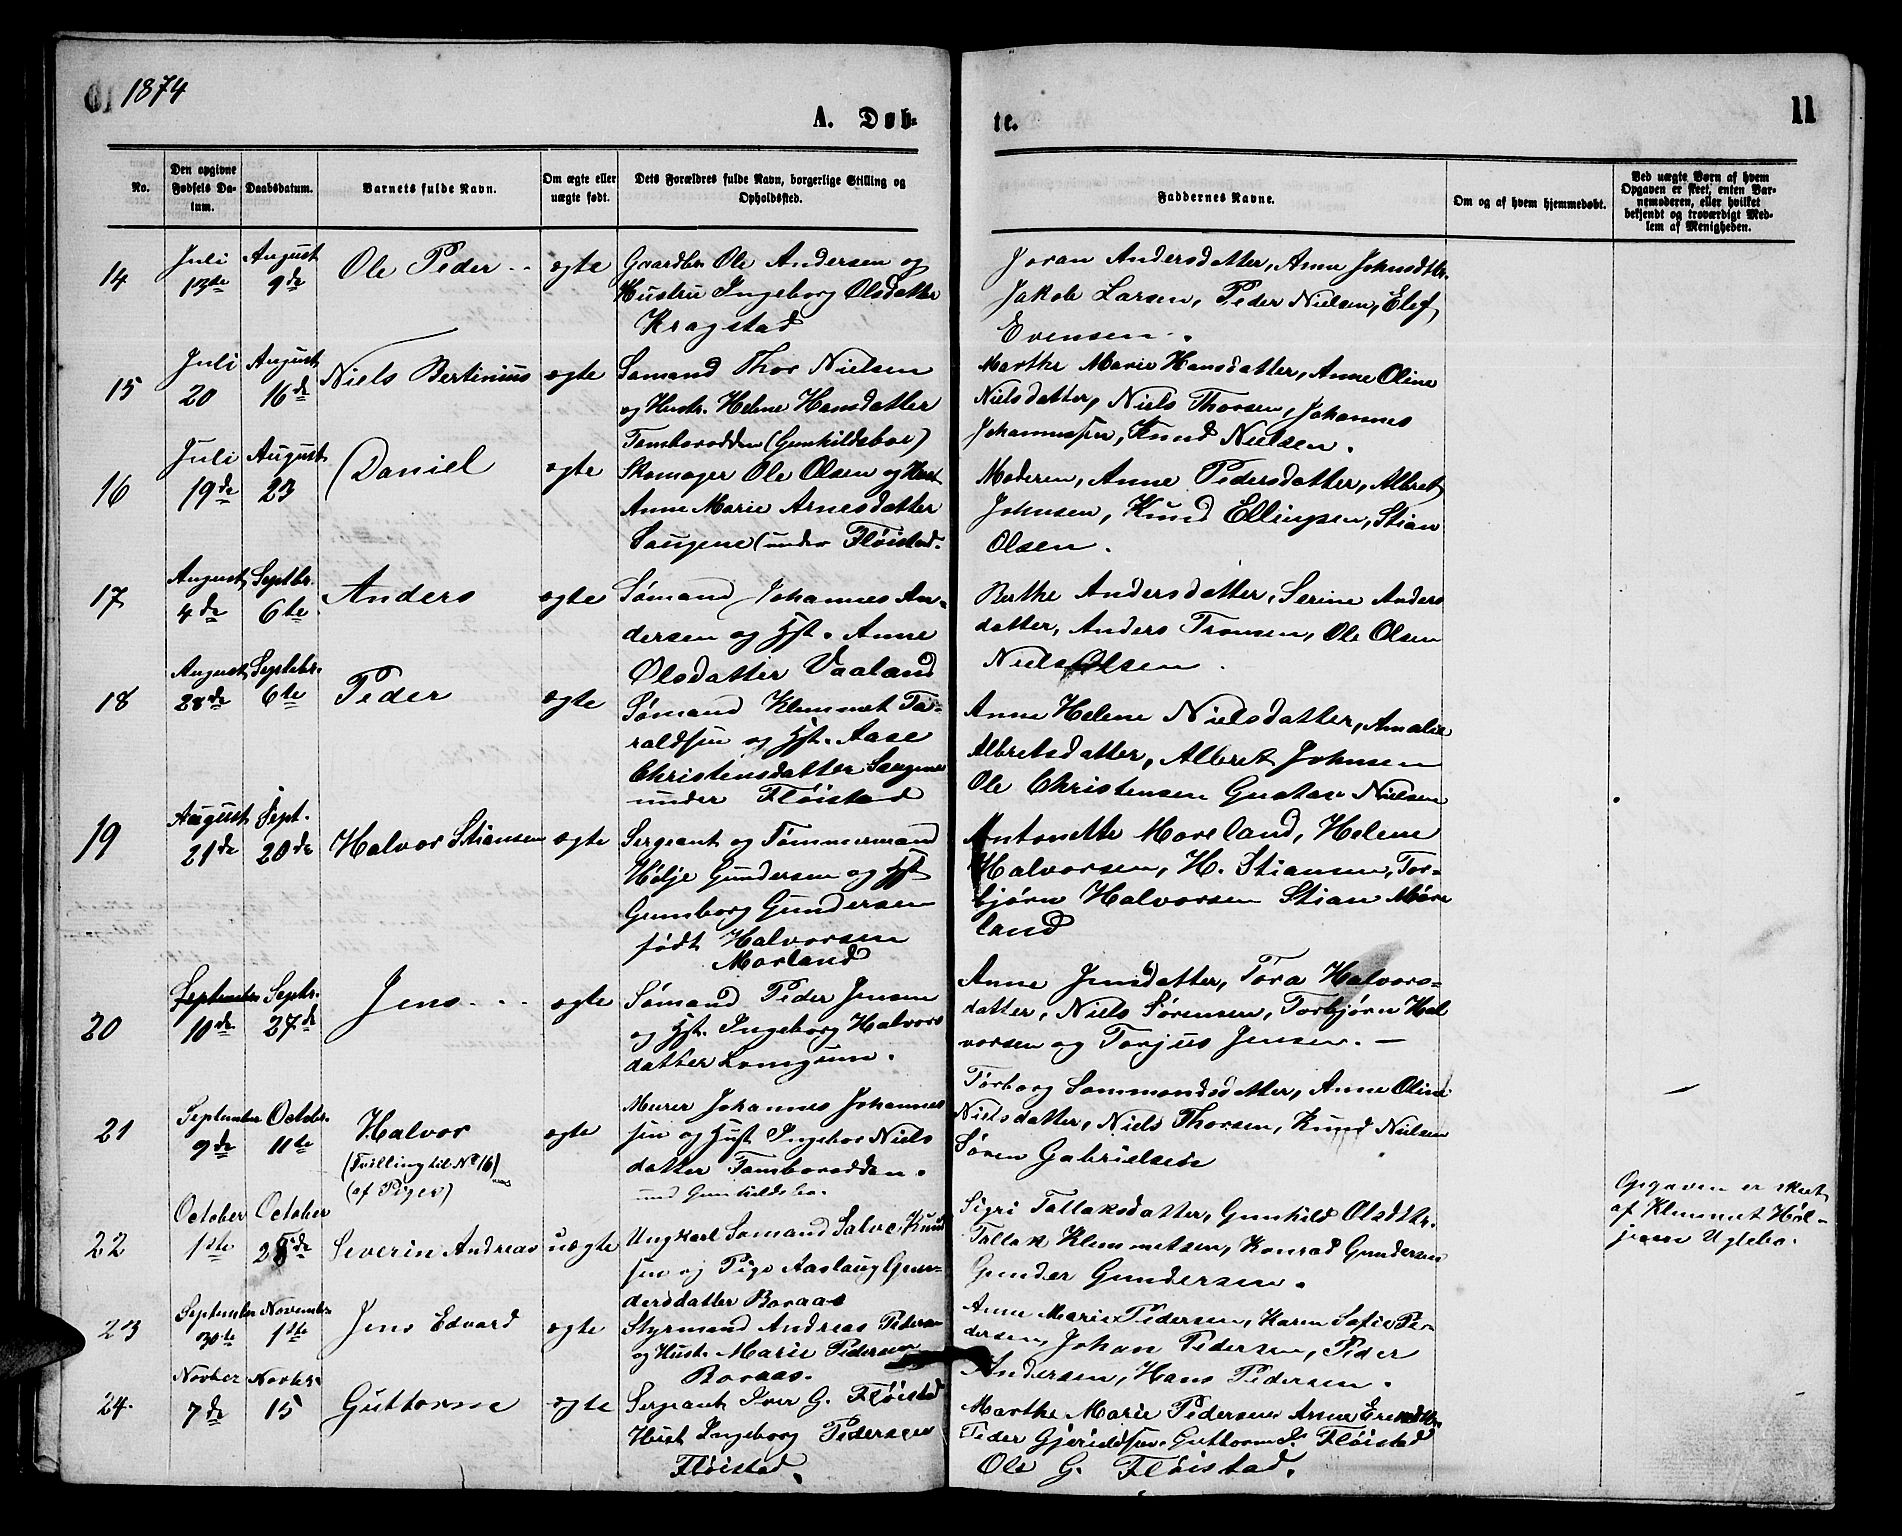 1874
A. Døb-
te.
11
No.
Den opgivne Fødsels Da-tum.
Daabsdatum.
Barnets fulde Navn.
Om ægte eller uægte født.
Dets Forældres fulde Navn, borgerlige Stilling og Opholdssted.
Faddernes Navne.
Om og af hvem hjemmedøbt.
Ved uægte Børn af hvem
Opgaven er skeet, enten Bar-
nemoderen, eller hvilket
bekjendt og troværdigt Med-
lem af Menigheden.
14 Juli 13te August 9de Ole Peder ægte
Gaardbr. Ole Andersen og
Hustru Ingeborg Olsdatter
Kragstad
Joran Andersdatter, Anne Johnsdtr.
Jakob Larsen, Peder Nielsen, Elef
Evensen.
15 Juli 20 August 16de Niels Bertinius ægte
Sømand Thor Nielsen
og Hustr. Helene Hansdatter
Tamborodden (Gunhildsboe)
Marthe Marie Hansdatter, Anne Oline
Nielsdatter, Niels Thorsen, Johannes
Johannessen, Knud Nielsen.
16 Juli 19de August 23 Daniel ægte
Skomager Ole Olsen og Hust
Anne Marie Arnesdatter
Saugene (under Fløistad.
Moderen, Anne Pedersdatter, Albret
Johnsen, Knud Ellingsen, Stian
Olsen.
17 August 4de Septbr. 6te Anders ægte
Sømand Johannes An-
dersen og Hst. Anne
Olsdatter Vaaland
Berthe Andersdatter, Serine Anders
datter, Anders Tronsen, Ole Olsen
Niels Olsen.
18 August 28de Septebr. 6te Peder ægte
Sømand Klemmet Ta-
raldsen og Hst. Aase
Christensdatter Saugene
under Fløistad
Anne Helene Nielsdatter, Amalie
Albretsdatter, Albret Johnsen
Ole Christensen Gustav Nielsen
19 August 21de Sept. 20de Halvor Stiansen ægte
Sergeant og Tømmermand
Hølje Gundersen og Hst
Gunborg Gundersen
født Halvorsen
Morland
Antonette Moreland, Helene
Halvorsen, H. Stiansen, Tor-
bjørn Halvorsen Stian Møre
land
20 September 10de Septr. 27de Jens ægte
Sømand Peder Jensen
og Hst. Ingeborg Halvors
datter Longum.
Anne Jensdatter, Tora Halvors-
datter, Niels Sørensen, Torbjørn Hal
vorsen og Torjus Jensen. —
21 September 9de October 11te Halvor ægte
(Tvilling til No 16)
(af Piger)
Murer Johannes Johannes
sen og Hust Ingebor Niels
datter Tamborodden.
und Gunhildsbo.
Torborg Sommondsdatter, Anne Oline
Nielsdatter, Niels Thorsen, Knud Nielsen
Søren Gabrielsen
22 October 1ste October 28de Severin Andreas uægte
Ungkarl Sømand Salve Knud
sen og Pige Aaslaug Gun-
dersdatter Boraas
Sigri Tallaksdatter, Gunhild Olsdtr.
Tallak Klemmetsen, Konrad Gundersen
Gunder Gundersen.
Opgaven er skeet
af Klemmet Høl-
jesen Uglebo.
23 September 30te November 1ste Jens Edvard ægte
Styrmand Andreas Pedersen
og Hust. Marie Pedersen
Boraas.
Anne Marie Pedersen, Karen Sofie Pe-
dersen, Johan Pedersen, Peder
Andersen, Hans Pedersen.
24. Novber 7de Novbr. 15 Guttorm ægte
Sergeant Iver G. Fløistad
Hust Ingeborg Pedersen
Fløistad.
Marthe Marie Pedersen Anne
Peder Guttorm Fløistad
Ole G. Fløistad.